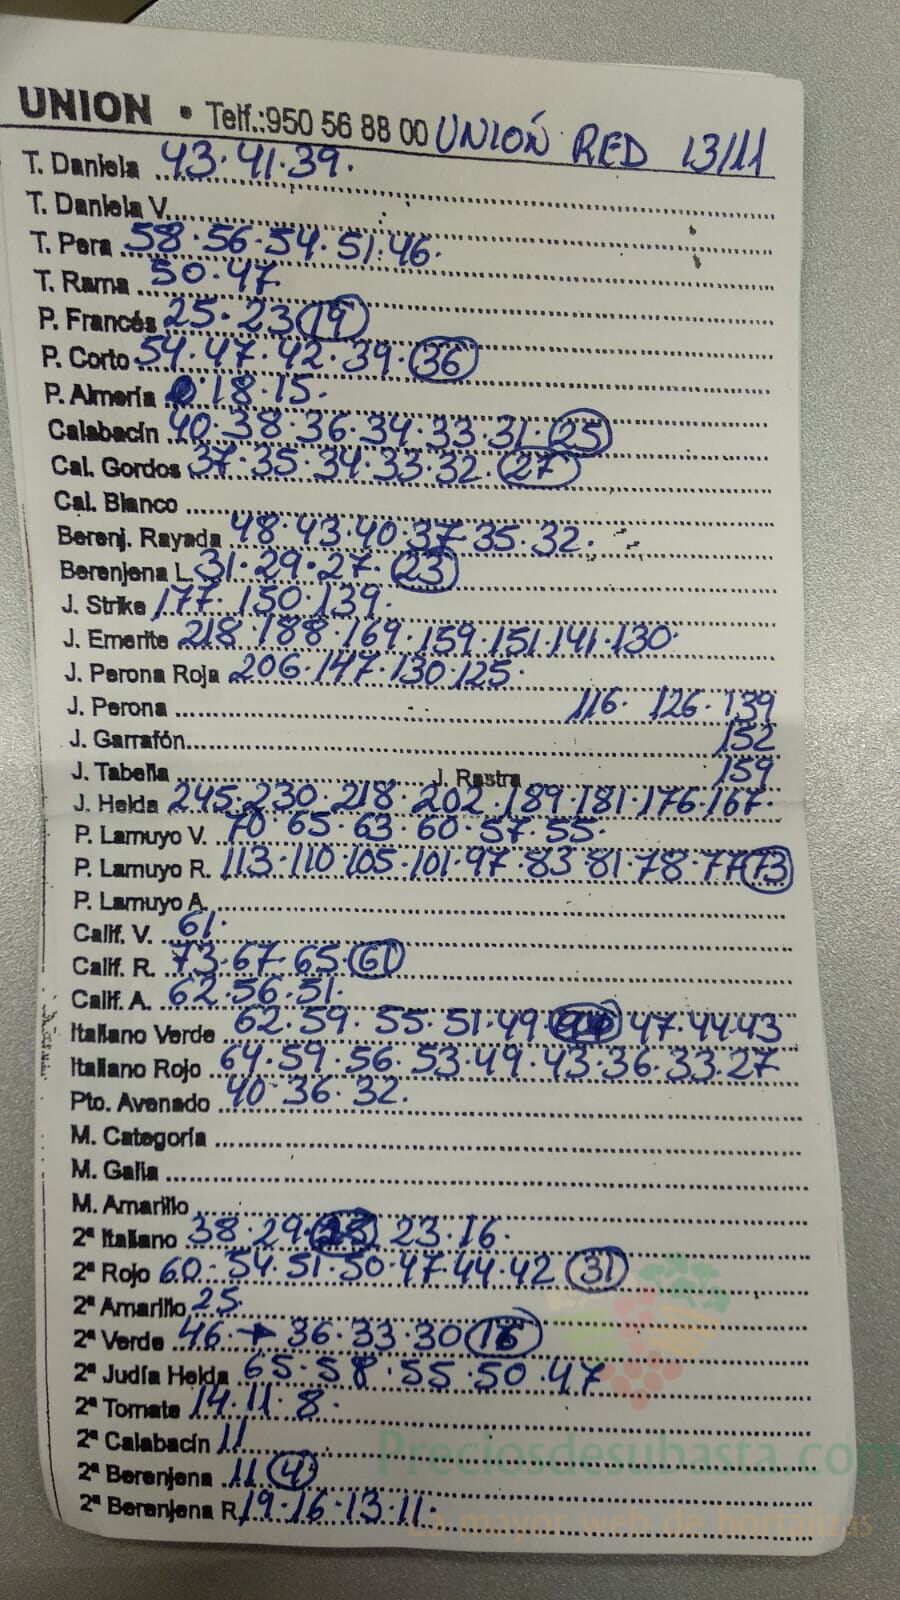 UNION • Telf.:950 56 88 00 UNIÓN RED 13/11
T. Daniela 43·41·39·
T. Daniela V.
T. Pera 58·56·54·51·46·
T. Rama 50·47
P. Francés 25·23 19
P. Corto 54·47·42·39·36
P. Almería ·18·15·
Calabacín 40·38·36·34·33·31·25
Cal. Gordos 37·35·34·33·32·27
Cal. Blanco
Berenj. Rayada 48·43·40·37·35·32·
Berenjena L 31·29·27·23
J. Strike 177·150·139·
J. Emerite 218·188·169·159·151·141·130·
J. Perona Roja 206·147·130·125·
J. Perona 116· 126·139
J. Garrafón 152
J. Tabella J. Rastra 159
J. Helda 245·230·218·202·189·181·176·167·
P. Lamuyo V. 70·65·63·60·57·55·
P. Lamuyo R. 113·110·105·101·97·83·81·78·77 73
P. Lamuyo A.
Calif. V. 61·
Calif. R. 73·67·65·61
Calif. A. 62·56·51·
Italiano Verde 62·59·55·51·49· 47·44·43
Italiano Rojo 64·59·56·53·49·43·36·33·27
Pto. Avenado 40·36·32·
M. Categoría
M. Galia
M. Amarillo
2ª Italiano 38·29· 23·16·
2ª Rojo 60·54·51·50·47·44·42 31
2ª Amarillo 25
2ª Verde 46· 36·33·30
2ª Judía Helda 65·58·55·50·47
2ª Tomate 14·11·8·
2ª Calabacín 11
2ª Berenjena 11 4
2ª Berenjena R. 19·16·13·11·
Preciosdesubasta.com
La mayor web de hortalizas